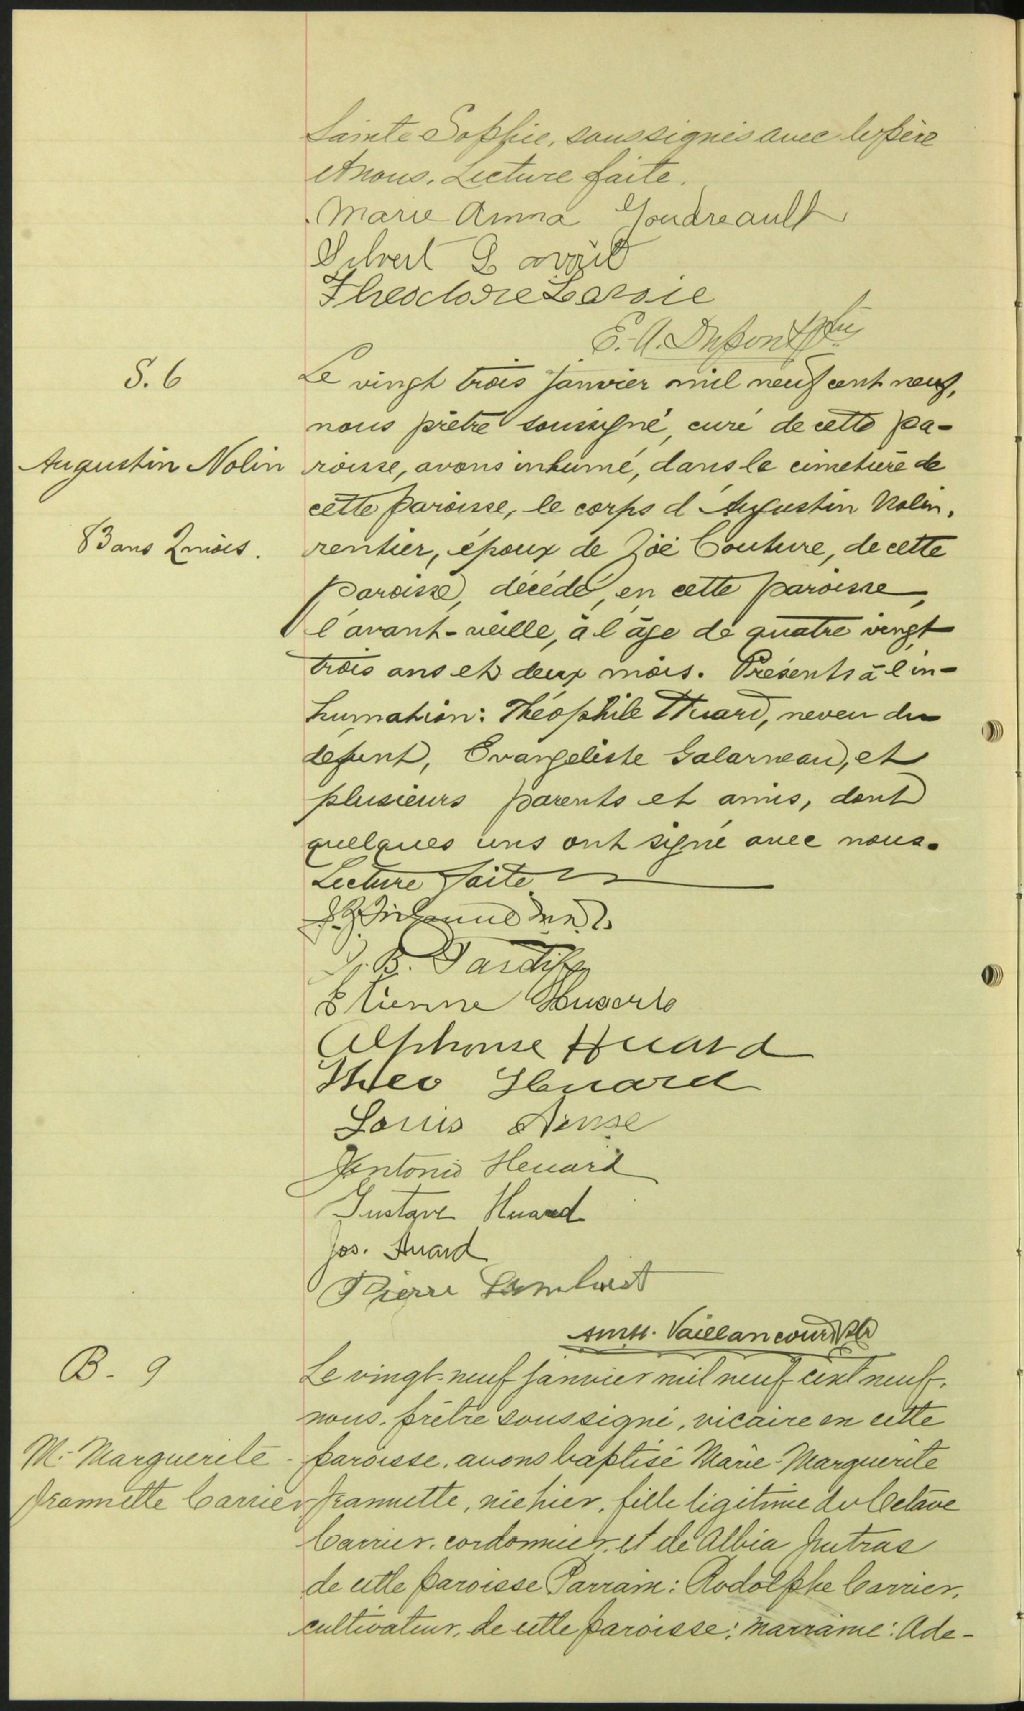 Sainte Sophie, soussignés avec le père
et nous. Lecture faite.
Marie Anna Goudreault
Silvert Lavoie
Theodore Lavoie
E. A. Dupont Ptre
S. 6
Le vingt trois janvier mil neuf cent neuf,
nous prêtre soussigné, curé de cette pa-
Augustin Nolin
roisse, avons inhumé, dans le cimetière de
cette paroisse, le corps d'Augustin Nolin,
83 ans 2 mois.
rentier, époux de Zoé Couture, de cette
paroisse, décédé, en cette paroisse,
l'avant-veille, à l'âge de quatre vingt
trois ans et deux mois. Présents à l'in-
humation: Théophile Huard, neveu du
défunt, Evangeliste Galarneau, et
plusieurs parents et amis, dont
quelques uns ont signé avec nous.
Lecture faite.
J. B. Tardif
Etienne Husard
Alphonse Huard
Theo Huard
Louis Anse
Antonio Heuard
Gustave Huard
Jos. Huard
Pierre Lambert
Vaillancourt Ptr
B - 9
Le vingt-neuf janvier mil neuf cent neuf,
nous, prêtre soussigné, vicaire en cette
M.-Marguerite
paroisse, avons baptisé Marie-Marguerite
Jeannette Carrier
Jeannette, née hier, fille légitime de Octave
Carrier, cordonnier, et de Albia Jutras
de cette paroisse Parrain: Rodolphe Carrier,
cultivateur, de cette paroisse; marraine: Ade-